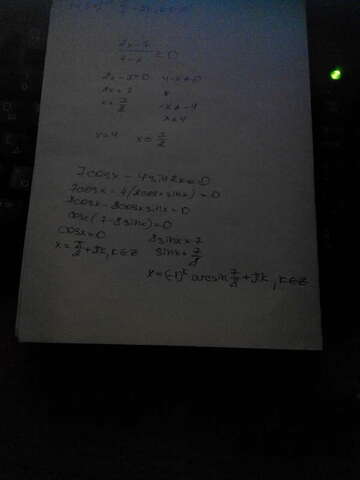 2x-7
4-x ≥0
2x-7=0 4-x≠0
2x=7 x
x=7/2 -x≠-4
x≠4
x=4 x=7/2
7cosx-4sin2x=0
7cosx-4(2cosx sinx)=0
7cosx-8cosx sinx=0
cosx(7-8sinx)=0
cosx=0 8sinx=7
x=π/2+πk, k∈Z sinx=7/8
x=(-1)^k arcsin 7/8+πk, k∈Z